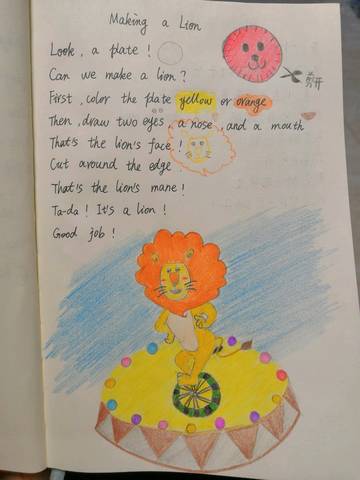 Making a Lion
Look, a plate!
Can we make a lion?
剪开
First, color the plate yellow or orange
Then, draw two eyes, a nose, and a mouth
That's the lion's face!
Cut around the edge
That's the lion's mane!
Ta-da! It's a lion!
Good job!